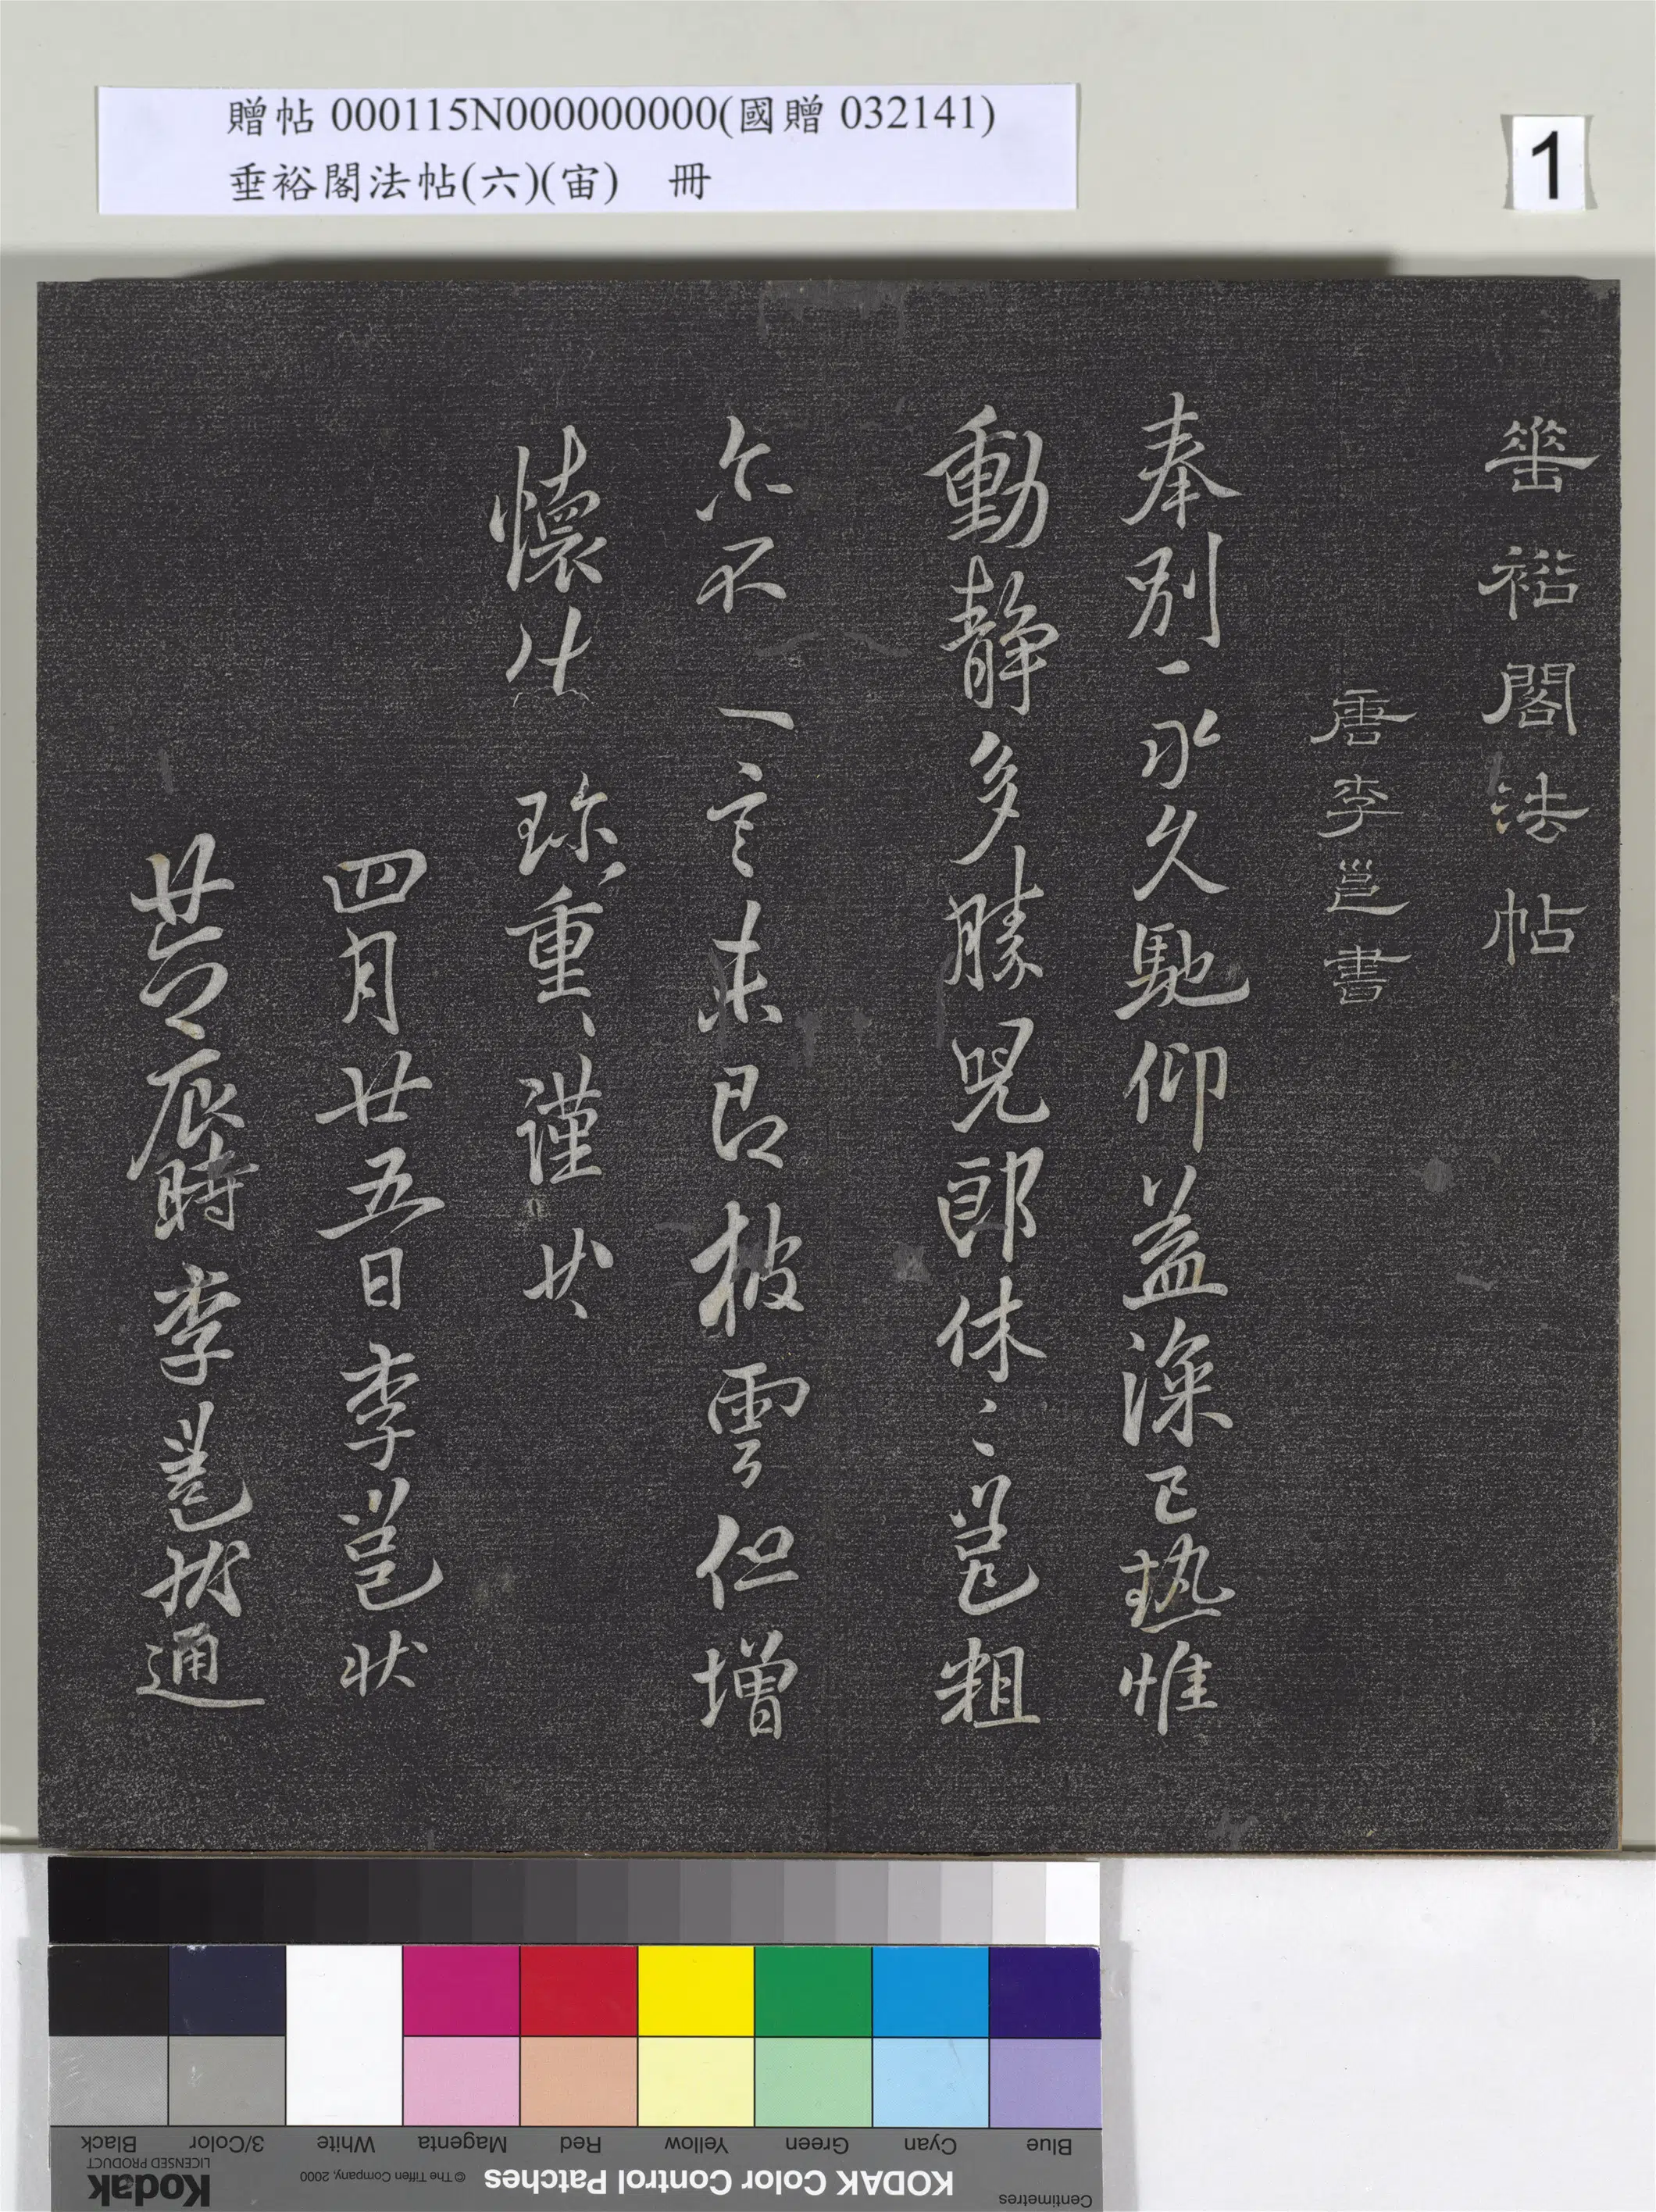 贈帖 000115N000000000(國贈 032141)
垂裕閣法帖(六)(宙) 冊
1
垂裕閣法帖
唐李邕書
奉別、永久馳仰益深已熱惟
動静多勝兄郎休〻邕粗
尒不一言未即披雲但增
懷
珎重、謹
四月廿五日李邕狀
時李邕狀通
Black
3/Color
White
Magenta
Red
Yellow
Green
Cyan
Blue
Kodak
LICENSED PRODUCT
© The Tiffen Company, 2000
KODAK Color Control Patches
Centimetres